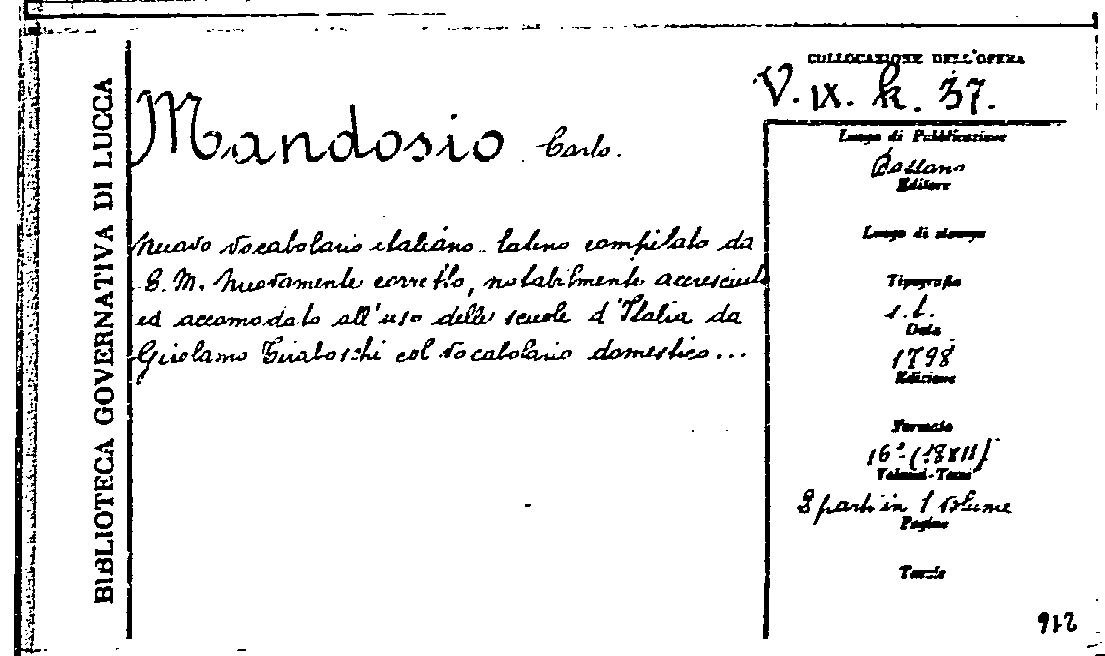 BIBLIOTECA GOVERNATIVA DI LUCCA
Mandosio Carlo.
Nuovo vocabolario italiano-latino compilato da
C. M. Nuovamente corretto, notabilmente accresciuto
ed accomodato all'uso delle scuole d'Italia da
Girolamo Tiraboschi col vocabolario domestico...
COLLOCAZIONE DELL'OPERA
V. IX. k. 37.
Luogo di Pubblicazione
Bassano
Editore
Luogo di stampa
Tipografia
s.t.
Data
1798
Edizione
Formato
16° (18x11)
Volumi-Tomi
2 parti in 1 volume
Pagine
Tavole
912